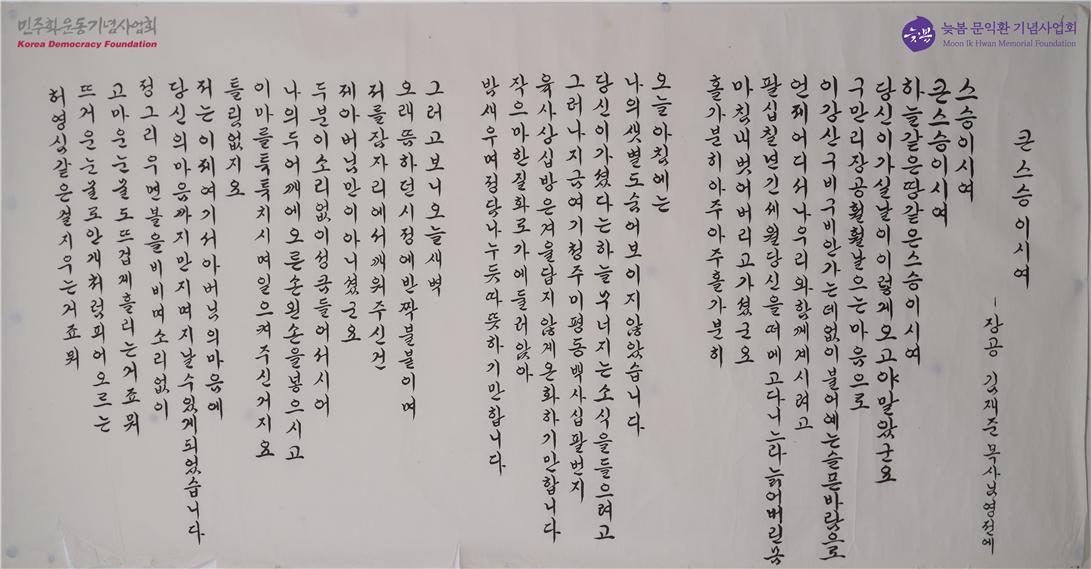 민주화운동기념사업회
Korea Democracy Foundation
늦봄
늦봄 문익환 기념사업회
Moon Ik Hwan Memorial Foundation
큰 스승이시여
- 장공 김재준 목사님 영전에
스승이시여
큰 스승이시여
하늘같은 땅같은 스승이시여
당신이 가실 날이 이렇게 오고야 말았군요
구만리장공 훨훨 날으는 마음으로
이 강산 구비구비 안 가는 데 없이 불어예는 슬픈 바람으로
언제 어디서나 우리와 함께 계시려고
팔십칠년 긴 세월 당신을 떠메고 다니느라 늙어버린 몸
마침내 벗어버리고 가셨군요
홀가분히 아주 아주 홀가분히
오늘 아침에는
나의 샛별도 숨어 보이지 않았습니다
당신이 가셨다는 하늘 무너지는 소식을 들으려고
그러나 지금 여기 청주 미평동 백사십팔번지
육사상 십방은 겨울답지 않게 온화하기만 합니다
작으마한 질화로가에 둘러앉아
밤새우며 정담 나누듯 따뜻하기만 합니다
그러고보니 오늘 새벽
오래 뜸하던 시정에 반짝 불붙이며
저를 잠자리에서 깨워주신 건
제 아버님만이 아니셨군요
두분이 소리없이 성큼 들어서시어
나의 두 어깨에 오른손 왼손을 넣으시고
이마를 툭툭 치시며 일으켜 주신 거지요
틀림없지요
저는 이제 여기서 아버님의 마음에
당신의 마음까지 만지며 지날 수 있게 되었습니다
정 그리우면 볼을 비비며 소리없이
고마운 눈물도 뜨겁게 흘리는 거죠 뭐
뜨거운 눈물로 안개처럼 피어오르는
허영심 같은 걸 지우는 거죠 뭐